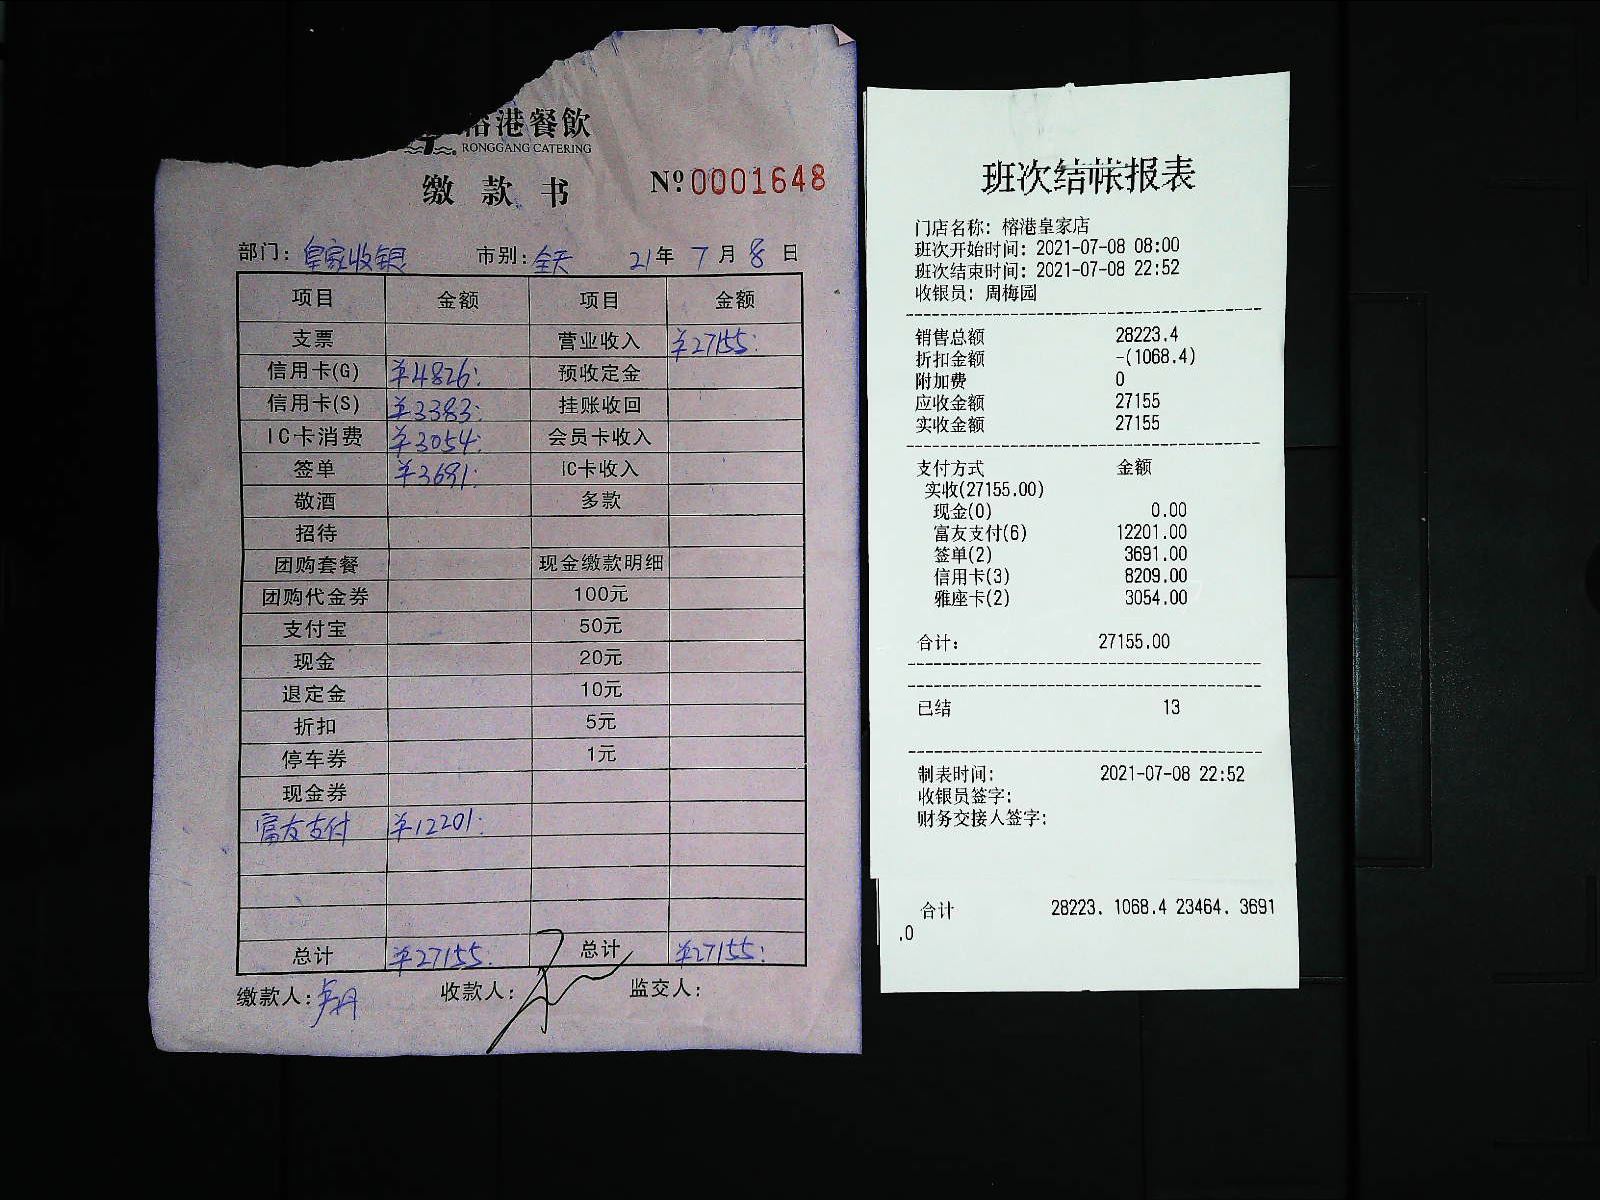 港餐飲
RONGGANG CATERING
缴款书
№0001648
部门: 皇家收银 市别: 全天 21年 7月 8日
项目 金额 项目 金额
支票 营业收入 ¥27155:
信用卡(G) ¥4826: 预收定金
信用卡(S) ¥3383: 挂账收回
IC卡消费 ¥3054: 会员卡收入
签单 ¥3691: IC卡收入
敬酒 多款
招待
团购套餐 现金缴款明细
团购代金券 100元
支付宝 50元
现金 20元
退定金 10元
折扣 5元
停车券 1元
现金券
富友支付 ¥12201:
总计 ¥27155: 总计 ¥27155:
缴款人: 收款人: 监交人:
班次结帐报表
门店名称: 榕港皇家店
班次开始时间: 2021-07-08 08:00
班次结束时间: 2021-07-08 22:52
收银员: 周梅园
销售总额 28223.4
折扣金额 -(1068.4)
附加费 0
应收金额 27155
实收金额 27155
支付方式 金额
实收(27155.00)
现金(0) 0.00
富友支付(6) 12201.00
签单(2) 3691.00
信用卡(3) 8209.00
雅座卡(2) 3054.00
合计: 27155.00
已结 13
制表时间: 2021-07-08 22:52
收银员签字:
财务交接人签字:
合计 28223. 1068.4 23464. 3691
.0